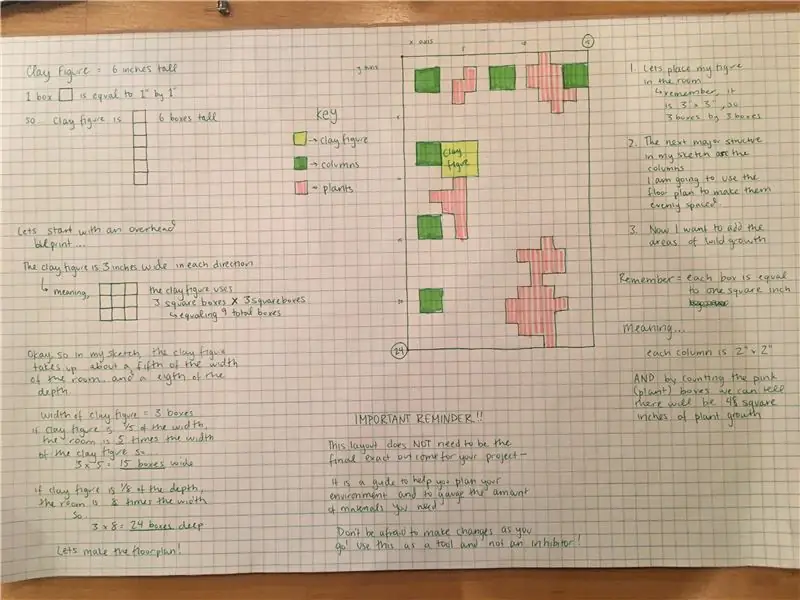 Clay Figure = 6 inches tall
1 box is equal to 1" by 1"
so clay figure is 6 boxes tall
key
→ clay figure
→ columns
→ plants
Lets start with an overhead
blueprint....
The clay figure is 3 inches wide in each direction
↳ meaning,
the clay figure uses
3 square boxes x 3 square boxes
↳ equaling 9 total boxes
Okay, so in my sketch, the clay figure
takes up about a fifth of the width
of the room and a eigth of the
depth.
width of clay figure = 3 boxes
if clay figure is 1/5 of the width,
the room is 5 times the width
of the clay figure so...
3 x 5 = 15 boxes wide
if clay figure is 1/8 of the depth,
the room is 8 times the width
so
3 x 8 = 24 boxes deep
Lets make the floorplan!
x axis
y axis
5
10
15
5
10
15
20
24
Clay
figure
IMPORTANT REMINDER!!
This layout does NOT need to be the
final exact outcome for your project –
It is a guide to help you plan your
environment and to gauge the amount
of materials you need
Don't be afraid to make changes as you
go! Use this as a tool and not an inhibitor!
1. Lets place my figure
in the room
↳ remember, it
is 3" x 3", so
3 boxes by 3 boxes
2. The next major structure
in my sketch are the
columns
I am going to use the
floor plan to make them
evenly spaced.
3. Now I want to add the
areas of wild growth
Remember = each box is equal
to one square inch
Meaning...
each column is 2" x 2"
AND by counting the pink
(plant) boxes we can tell
there will be 48 square
inches of plant growth